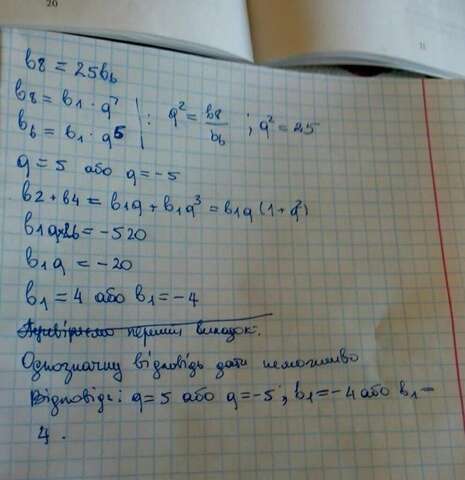 20
11
b8 = 25b6
b8 = b1 · q⁷ | : q² = b8/b6 ; q² = 25
b6 = b1 · q5
q = 5 або q = -5
b2 + b4 = b1q + b1q³ = b1q (1 + q²)
b1q·26 = -520
b1q = -20
b1 = 4 або b1 = -4
Перевіряємо перший випадок:
Однозначну відповідь дати неможливо
Відповідь: q = 5 або q = -5; b1 = -4 або b1 =
4.